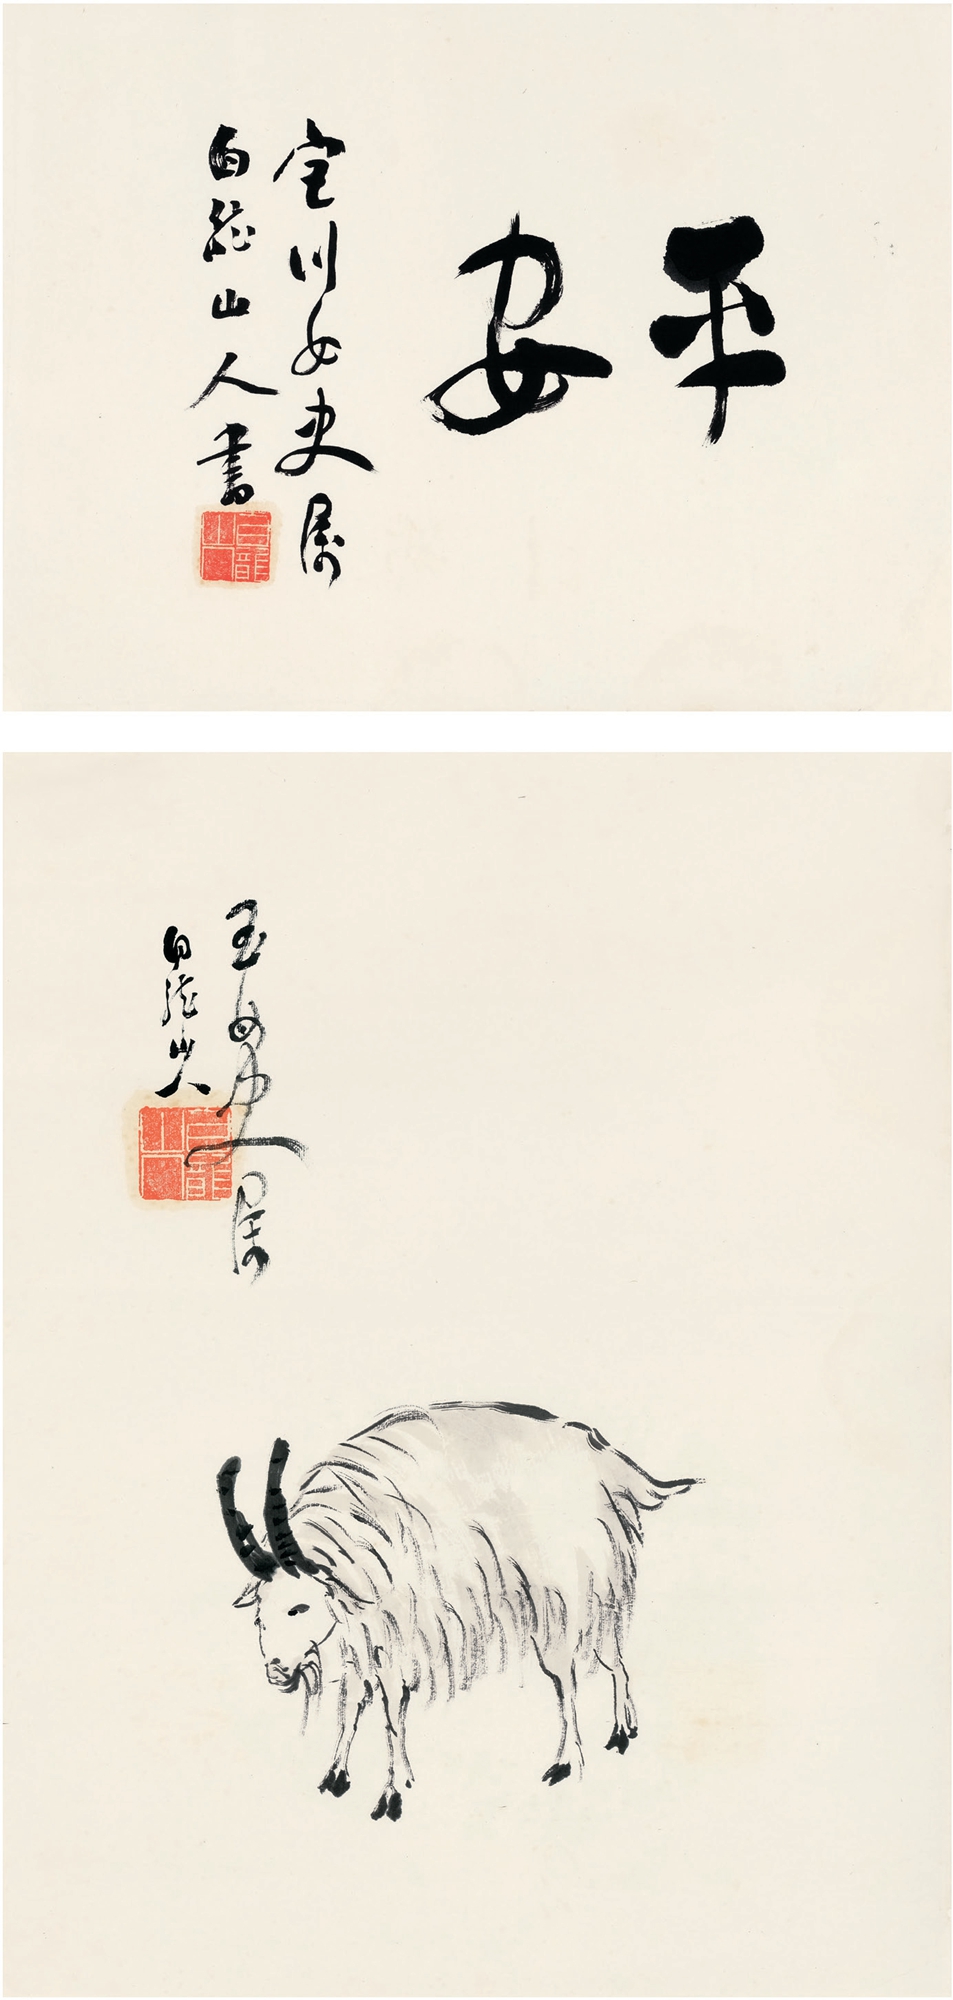 平安
宝川女史属
白龍山人書
白龍山人
玉女史属
白龍山人
白龍山人